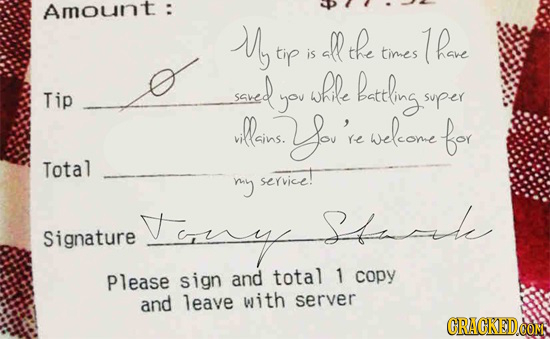 Amount :
My tip is all the times I have
Tip Ø saved you while battling super
villains. You're welcome for
Total my service!
Signature Tony Stark
Please sign and total 1 copy
and leave with server
CRACKED.COM